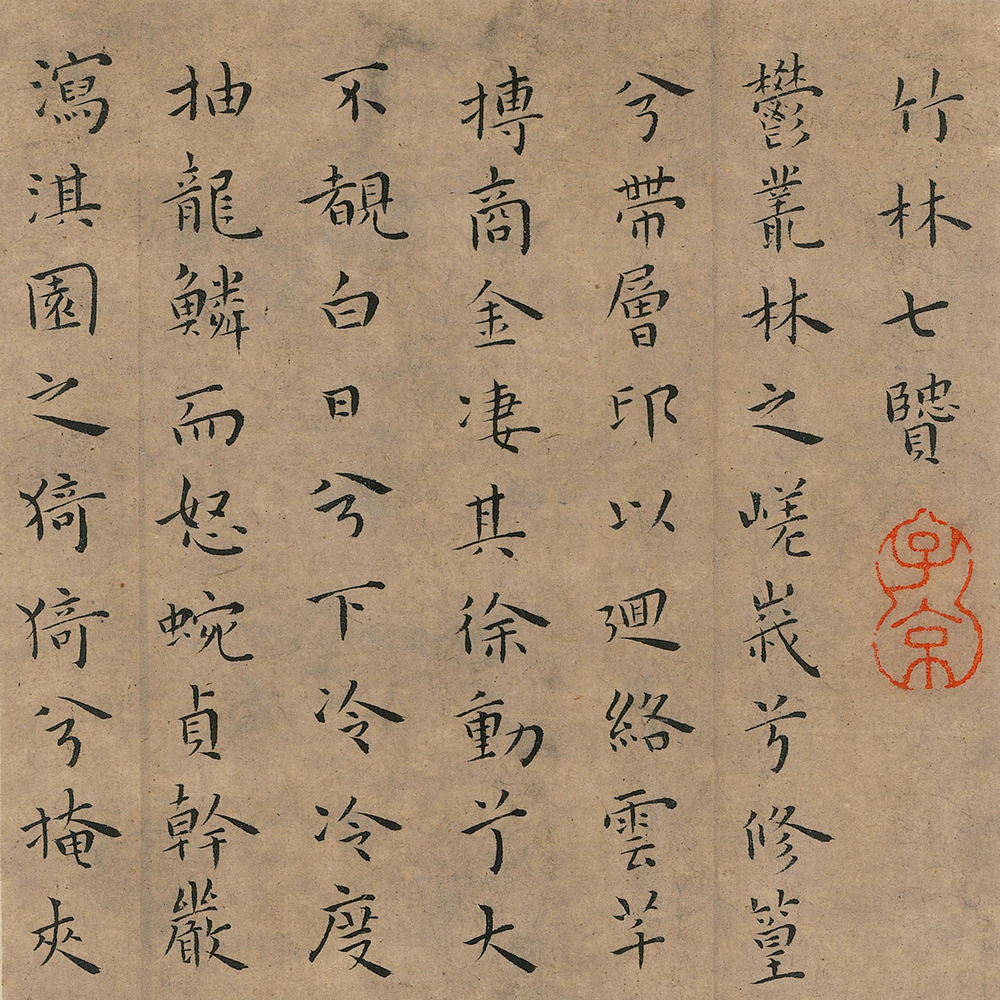 竹林七贒
子京
鬱叢林之嵯峩兮修篁
兮帶層卭以迴絡雲芊
搏商金凄其徐動兮大
不覩白日兮下冷冷度
抽龍鱗而怒蜿貞幹嚴
瀉淇園之猗猗兮掩夾